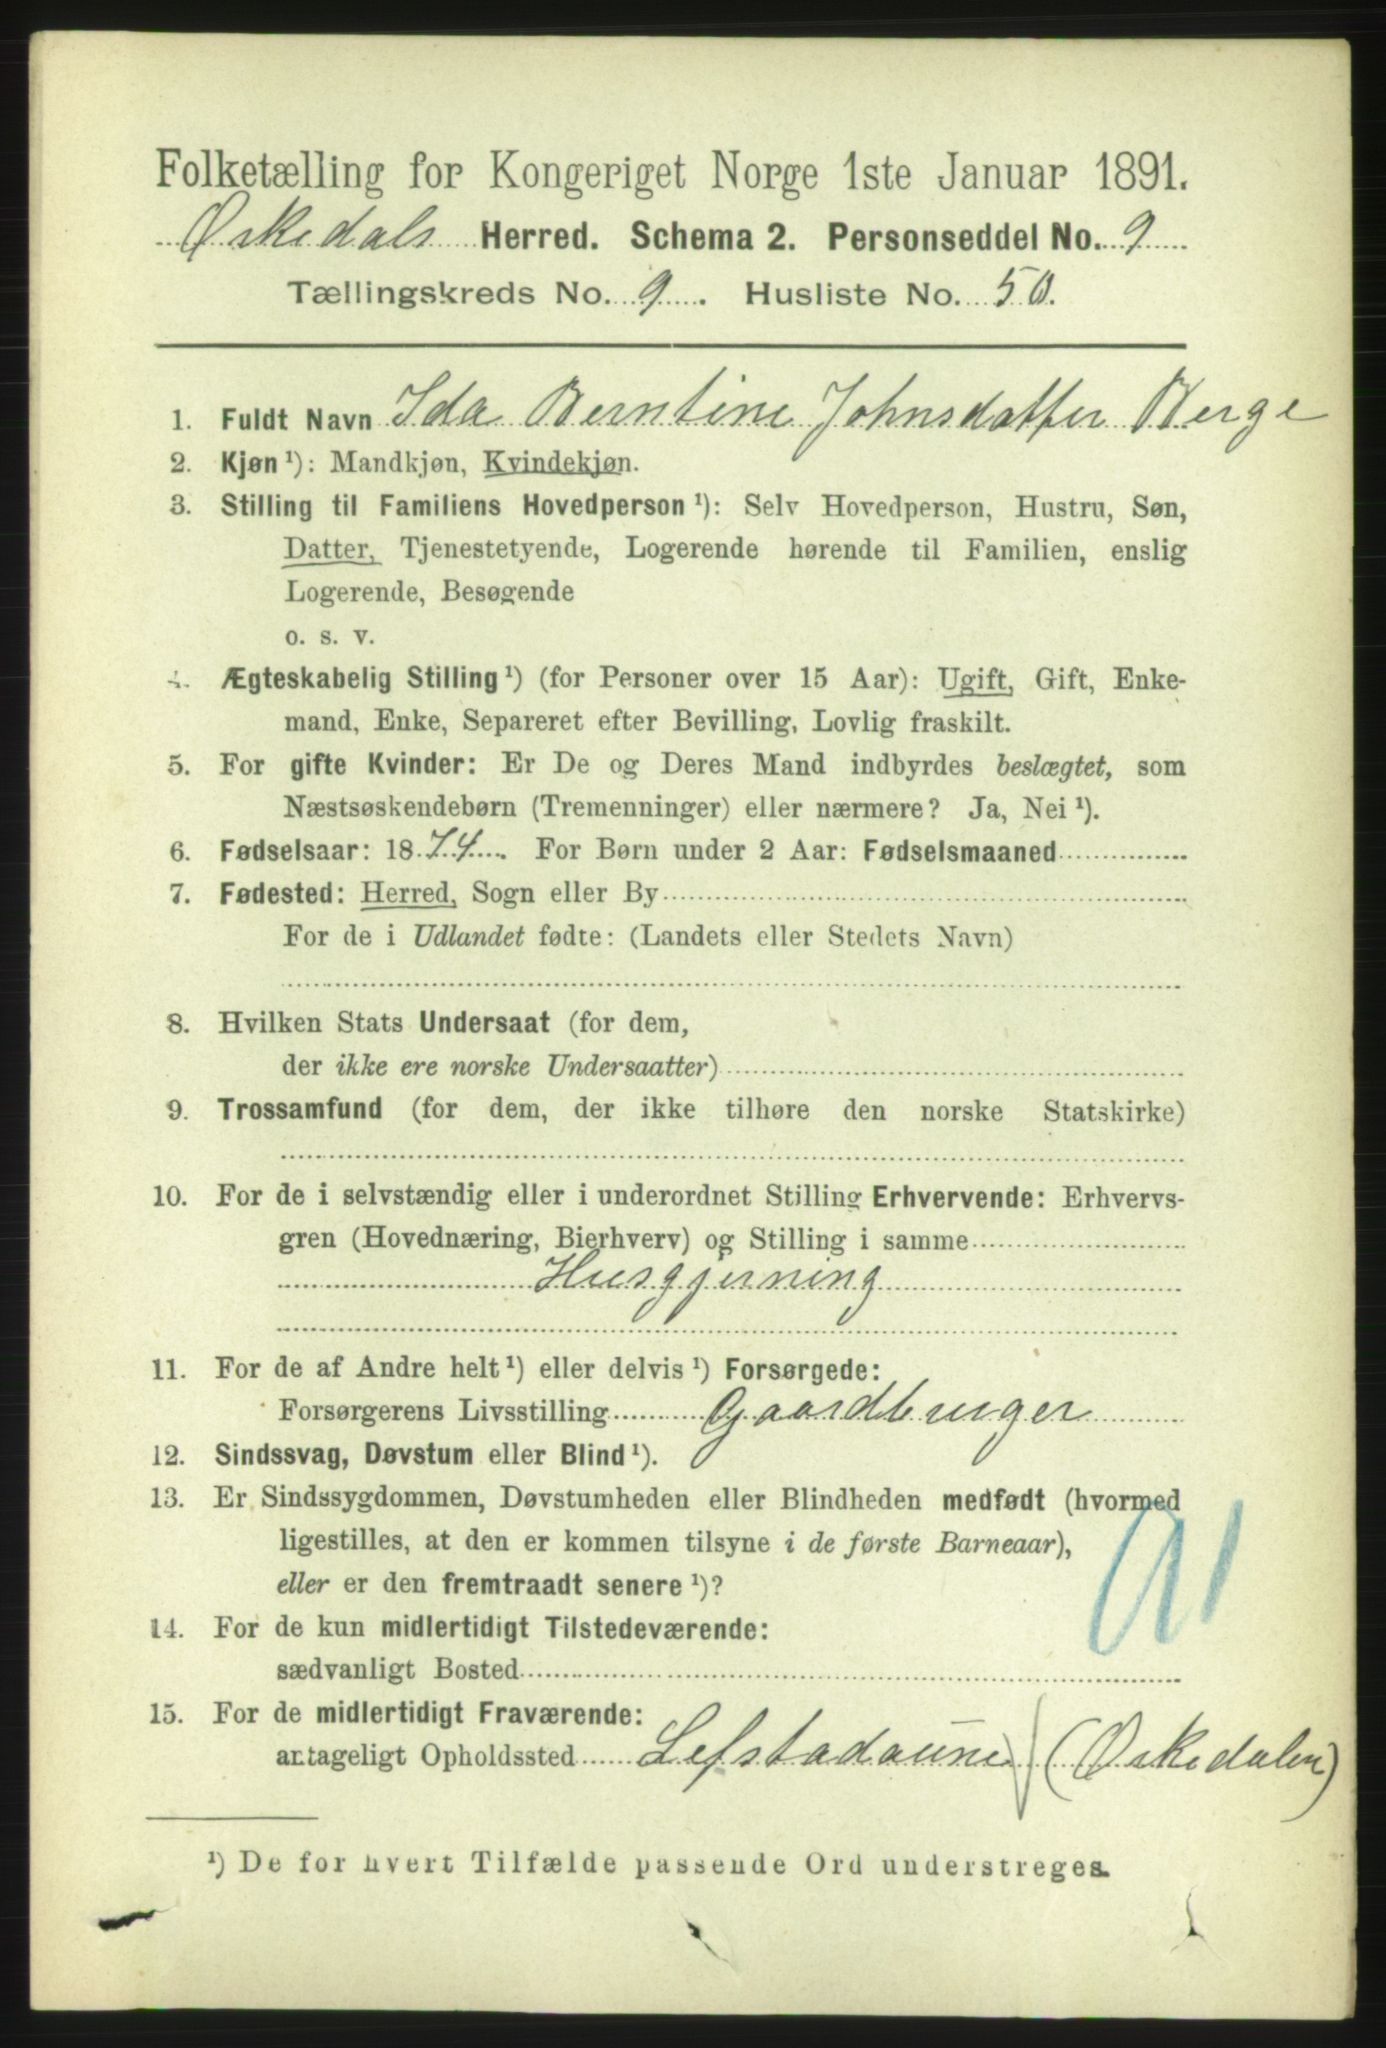 Folketælling for Kongeriget Norge 1ste Januar 1891.
Ørkedals Herred. Schema 2. Personseddel No. 9
Tællingskreds No. 9. Husliste No. 50.
1. Fuldt Navn Ida Berntine Johnsdatter Berge
2. Kjøn ¹): Mandkjøn, Kvindekjøn.
3. Stilling til Familiens Hovedperson ¹): Selv Hovedperson, Hustru, Søn,
Datter, Tjenestetyende, Logerende hørende til Familien, enslig
Logerende, Besøgende
o. s. v.
4. Ægteskabelig Stilling ¹) (for Personer over 15 Aar): Ugift, Gift, Enke-
mand, Enke, Separeret efter Bevilling, Lovlig fraskilt.
5. For gifte Kvinder: Er De og Deres Mand indbyrdes beslægtet, som
Næstsøskendebørn (Tremenninger) eller nærmere? Ja, Nei ¹).
6. Fødselsaar: 1874. For Børn under 2 Aar: Fødselsmaaned
7. Fødested: Herred, Sogn eller By
For de i Udlandet fødte: (Landets eller Stedets Navn)
8. Hvilken Stats Undersaat (for dem,
der ikke ere norske Undersaatter)
9. Trossamfund (for dem, der ikke tilhøre den norske Statskirke)
10. For de i selvstændig eller i underordnet Stilling Erhvervende: Erhvervs-
gren (Hovednæring, Bierhverv) og Stilling i samme
Husgjerning
11. For de af Andre helt ¹) eller delvis ¹) Forsørgede:
Forsørgerens Livsstilling Gaardbruger
12. Sindssvag, Døvstum eller Blind ¹).
13. Er Sindssygdommen, Døvstumheden eller Blindheden medfødt (hvormed
ligestilles, at den er kommen tilsyne i de første Barneaar),
eller er den fremtraadt senere ¹)?
14. For de kun midlertidigt Tilstedeværende:
sædvanligt Bosted
15. For de midlertidigt Fraværende:
antageligt Opholdssted Lefstadaune (Ørkedalen)
¹) De for hvert Tilfælde passende Ord understreges.